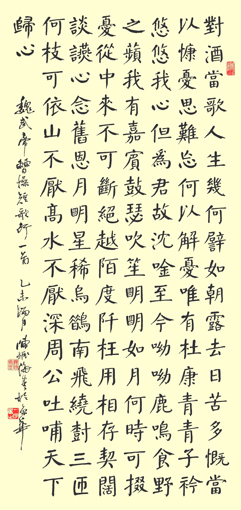 對酒當歌人生幾何譬如朝露去日苦多慨當
以慷憂思難忘何以解憂唯有杜康青青子衿
悠悠我心但為君故沈吟至今呦呦鹿鳴食野
之蘋我有嘉賓鼓瑟吹笙明明如月何時可掇
憂從中來不可斷絕越陌度阡枉用相存契闊
談讌心念舊恩月明星稀烏鵲南飛繞樹三匝
何枝可依山不厭高水不厭深周公吐哺天下
歸心
魏武帝曹操短歌行一首 乙未